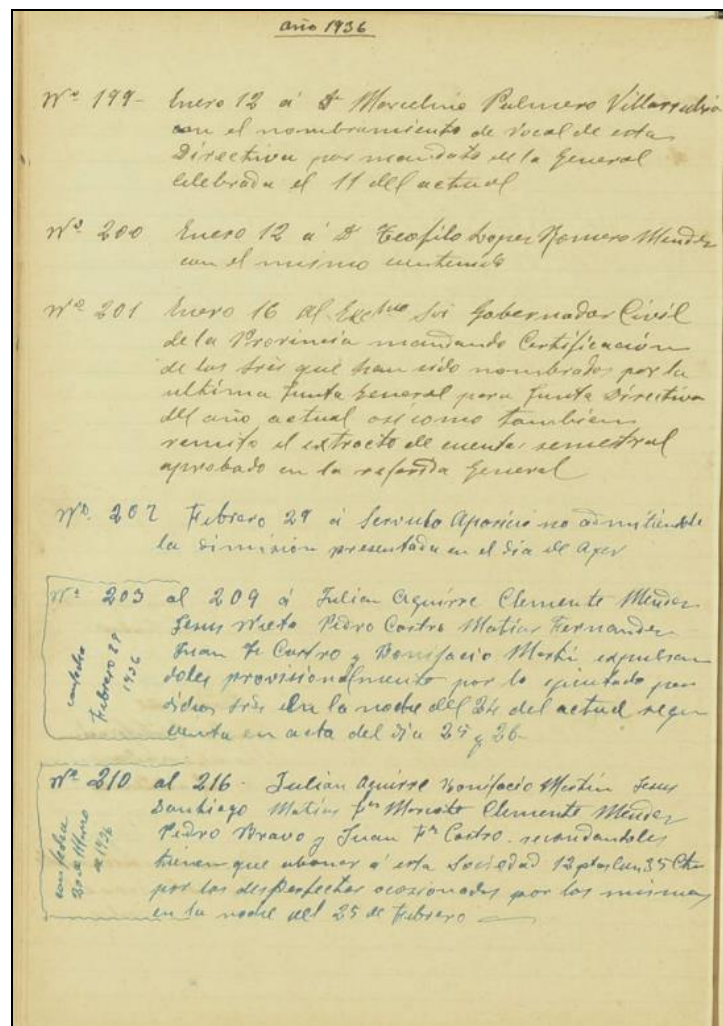 año 1936
Nº 199- Enero 12 á Dn Marcelino Palmero Villarrubia
con el nombramiento de vocal de esta
Directiva por mandato de la General
celebrada el 11 del actual
Nº 200 Enero 12 a Dn Teofilo Lopez Romero Mendez
con el mismo contenido
Nº 201 Enero 16 al Exctmo Sor Gobernador Civil
de la Provincia mandando Certificación
de los Sres que han sido nombrados por la
ultima Junta General para Junta Directiva
del año actual asi como tambien
remito el extracto de cuentas semestral
aprobado en la referida General
Nº 202 Febrero 29 á Aparicio no admitiendole
la dimision presentada en el dia de Ayer
Nº 203 al 209 á Julian Aguirre Clemente Mendez
Jesus Nieto Pedro Castro Matias Fernandez
Juan Fz Castro y Bonifacio Martin expulsan
doles provisionalmente por lo ejecutado por
dichos Sres En la noche del 24 del actual segun
cuenta en acta del dia 25 y 26-
con fecha
Febrero 29
1936
Nº 210 al 216- Julian Aguirre Bonifacio Martin Jesus
Santiago Matias Clemente Mendez
Pedro Bravo y Juan Fz Castro
tienen que abonar á esta Sociedad 12 ptas con 35 Cts
por los desperfectos ocasionados por los mismos
en la noche del 25 de Febrero
con fecha
20 de Marzo
de 1936